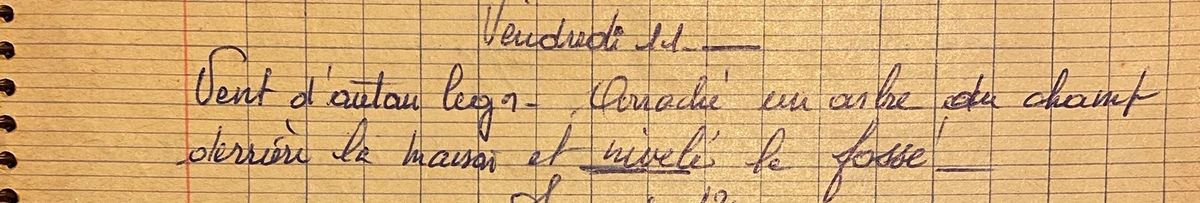 Vendredi 11
Vent d'autan leger - Arraché un arbre du champ
derrière la maison et nivelé le fossé
12